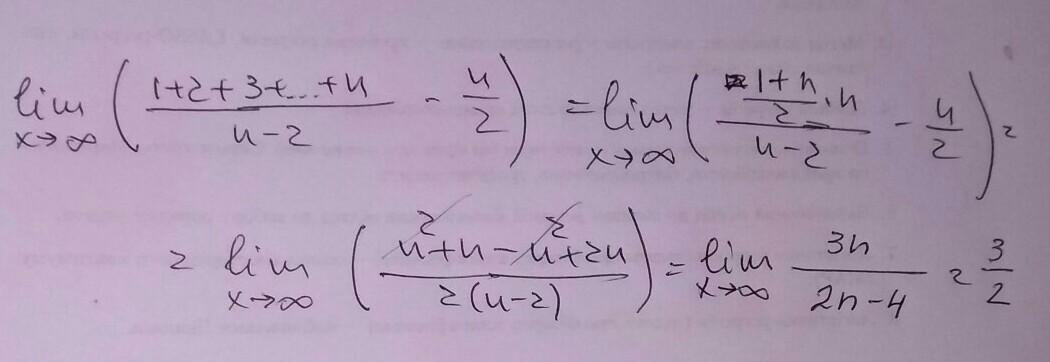 lim x→∞ ( (1+2+3+...+n)/(n-2) - n/2 ) = lim x→∞ ( ((1+n)/2 · n)/(n-2) - n/2 ) =
= lim x→∞ ( (n²+n-n²+2n)/(2(n-2)) ) = lim x→∞ 3n/(2n-4) = 3/2